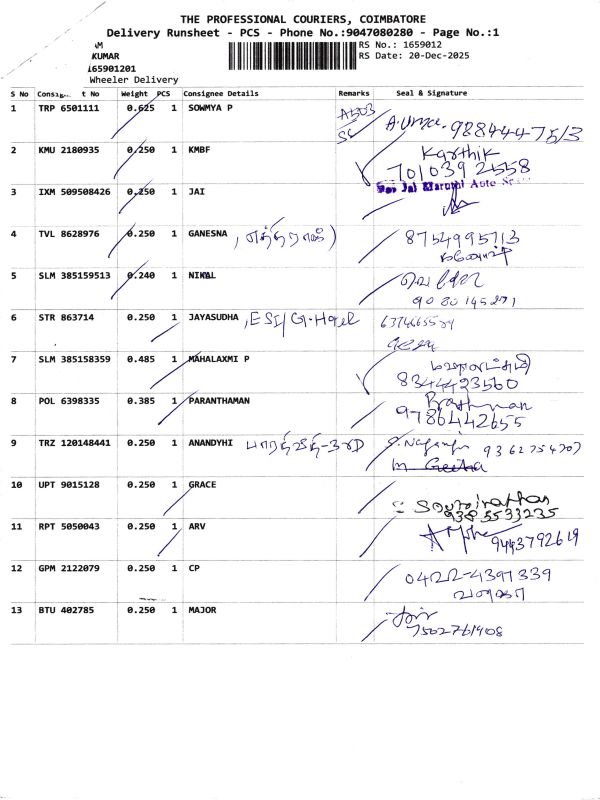 THE PROFESSIONAL COURIERS, COIMBATORE
Delivery Runsheet - PCS - Phone No.:9047080280 - Page No.:1
AM RS No.: 1659012
KUMAR RS Date: 20-Dec-2025
165901201
Wheeler Delivery
S No Consig t No Weight PCS Consignee Details Remarks Seal & Signature
1 TRP 6501111 0.625 1 SOWMYA P A503 A.Uma. 9884447513
SC
2 KMU 2180935 0.250 1 KMBF Karthik
7010392558
3 IXM 509508426 0.250 1 JAI Sri Jai Maruthi Auto
4 TVL 8628976 0.250 1 GANESNA 8754995713
5 SLM 385159513 0.240 1 NIKAL
9080145271
6 STR 863714 0.250 1 JAYASUDHA , ESI/G.H
7 SLM 385158359 0.485 1 MAHALAXMI P மகாலட்சுமி
8344423560
8 POL 6398335 0.385 1 PARANTHAMAN
9786442655
9 TRZ 120148441 0.250 1 ANANDYHI 9362754707
M Geetha
10 UPT 9015128 0.250 1 GRACE
9385533235
11 RPT 5050043 0.250 1 ARV 9443792619
12 GPM 2122079 0.250 1 CP 0422-4397339
13 BTU 402785 0.250 1 MAJOR
7502761908